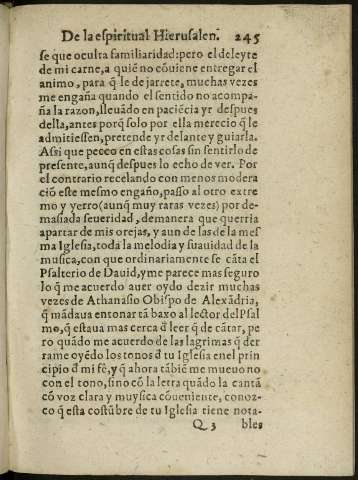 De la espiritual Hierusalen. 245
se que oculta familiaridad: pero el deleyte
de mi carne, a quiē no cōuiene entregar el
animo, para q̄ le de jarrete, muchas vezes
me engaña quando el sentido no acompa-
ña la razon, lleuādo en paciēcia yr despues
della, antes porq̄ solo por ella merecio q̄ le
admitiessen, pretende yr delante y guiarla.
Assi que peco en estas cosas sin sentirlo de
presente, aunq̄ despues lo echo de ver. Por
el contrario recelando con menos modera
ciō este mesmo engaño, passo al otro extre
mo y yerro (aunq̄ muy raras vezes) por de-
masiada seueridad, demanera que querria
apartar de mis orejas, y aun de las de la mes
ma Iglesia, toda la melodia y suauidad de la
musica, con que ordinariamente se cāta el
Psalterio de Dauid, y me parece mas seguro
lo q̄ me acuerdo auer oydo dezir muchas
vezes de Athanasio Obispo de Alexādria,
q̄ mādaua entonar tā baxo al lector del Psal
mo, q̄ estaua mas cerca đ leer q̄ de cātar, pe
ro quādo me acuerdo de las lagrimas q̄ der
rame oyēdo los tonos đ tu Iglesia en el prin
cipio đ mi fè, y q̄ ahora tābiē me mueuo no
con el tono, sino cō la letra quādo la cantā
cō voz clara y muysica cōueniente, conoz-
co q̄ esta costūbre de tu Iglesia tiene nota-
Q 3 bles